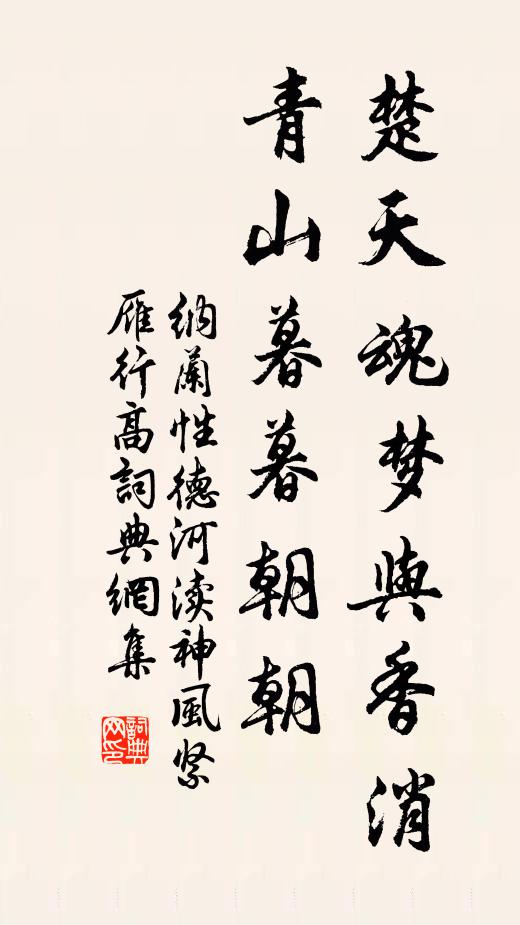 楚天魂梦與香消
青山暮暮朝朝
纳蘭性德河渎神風紧
雁行高詞典網集
詞典网印